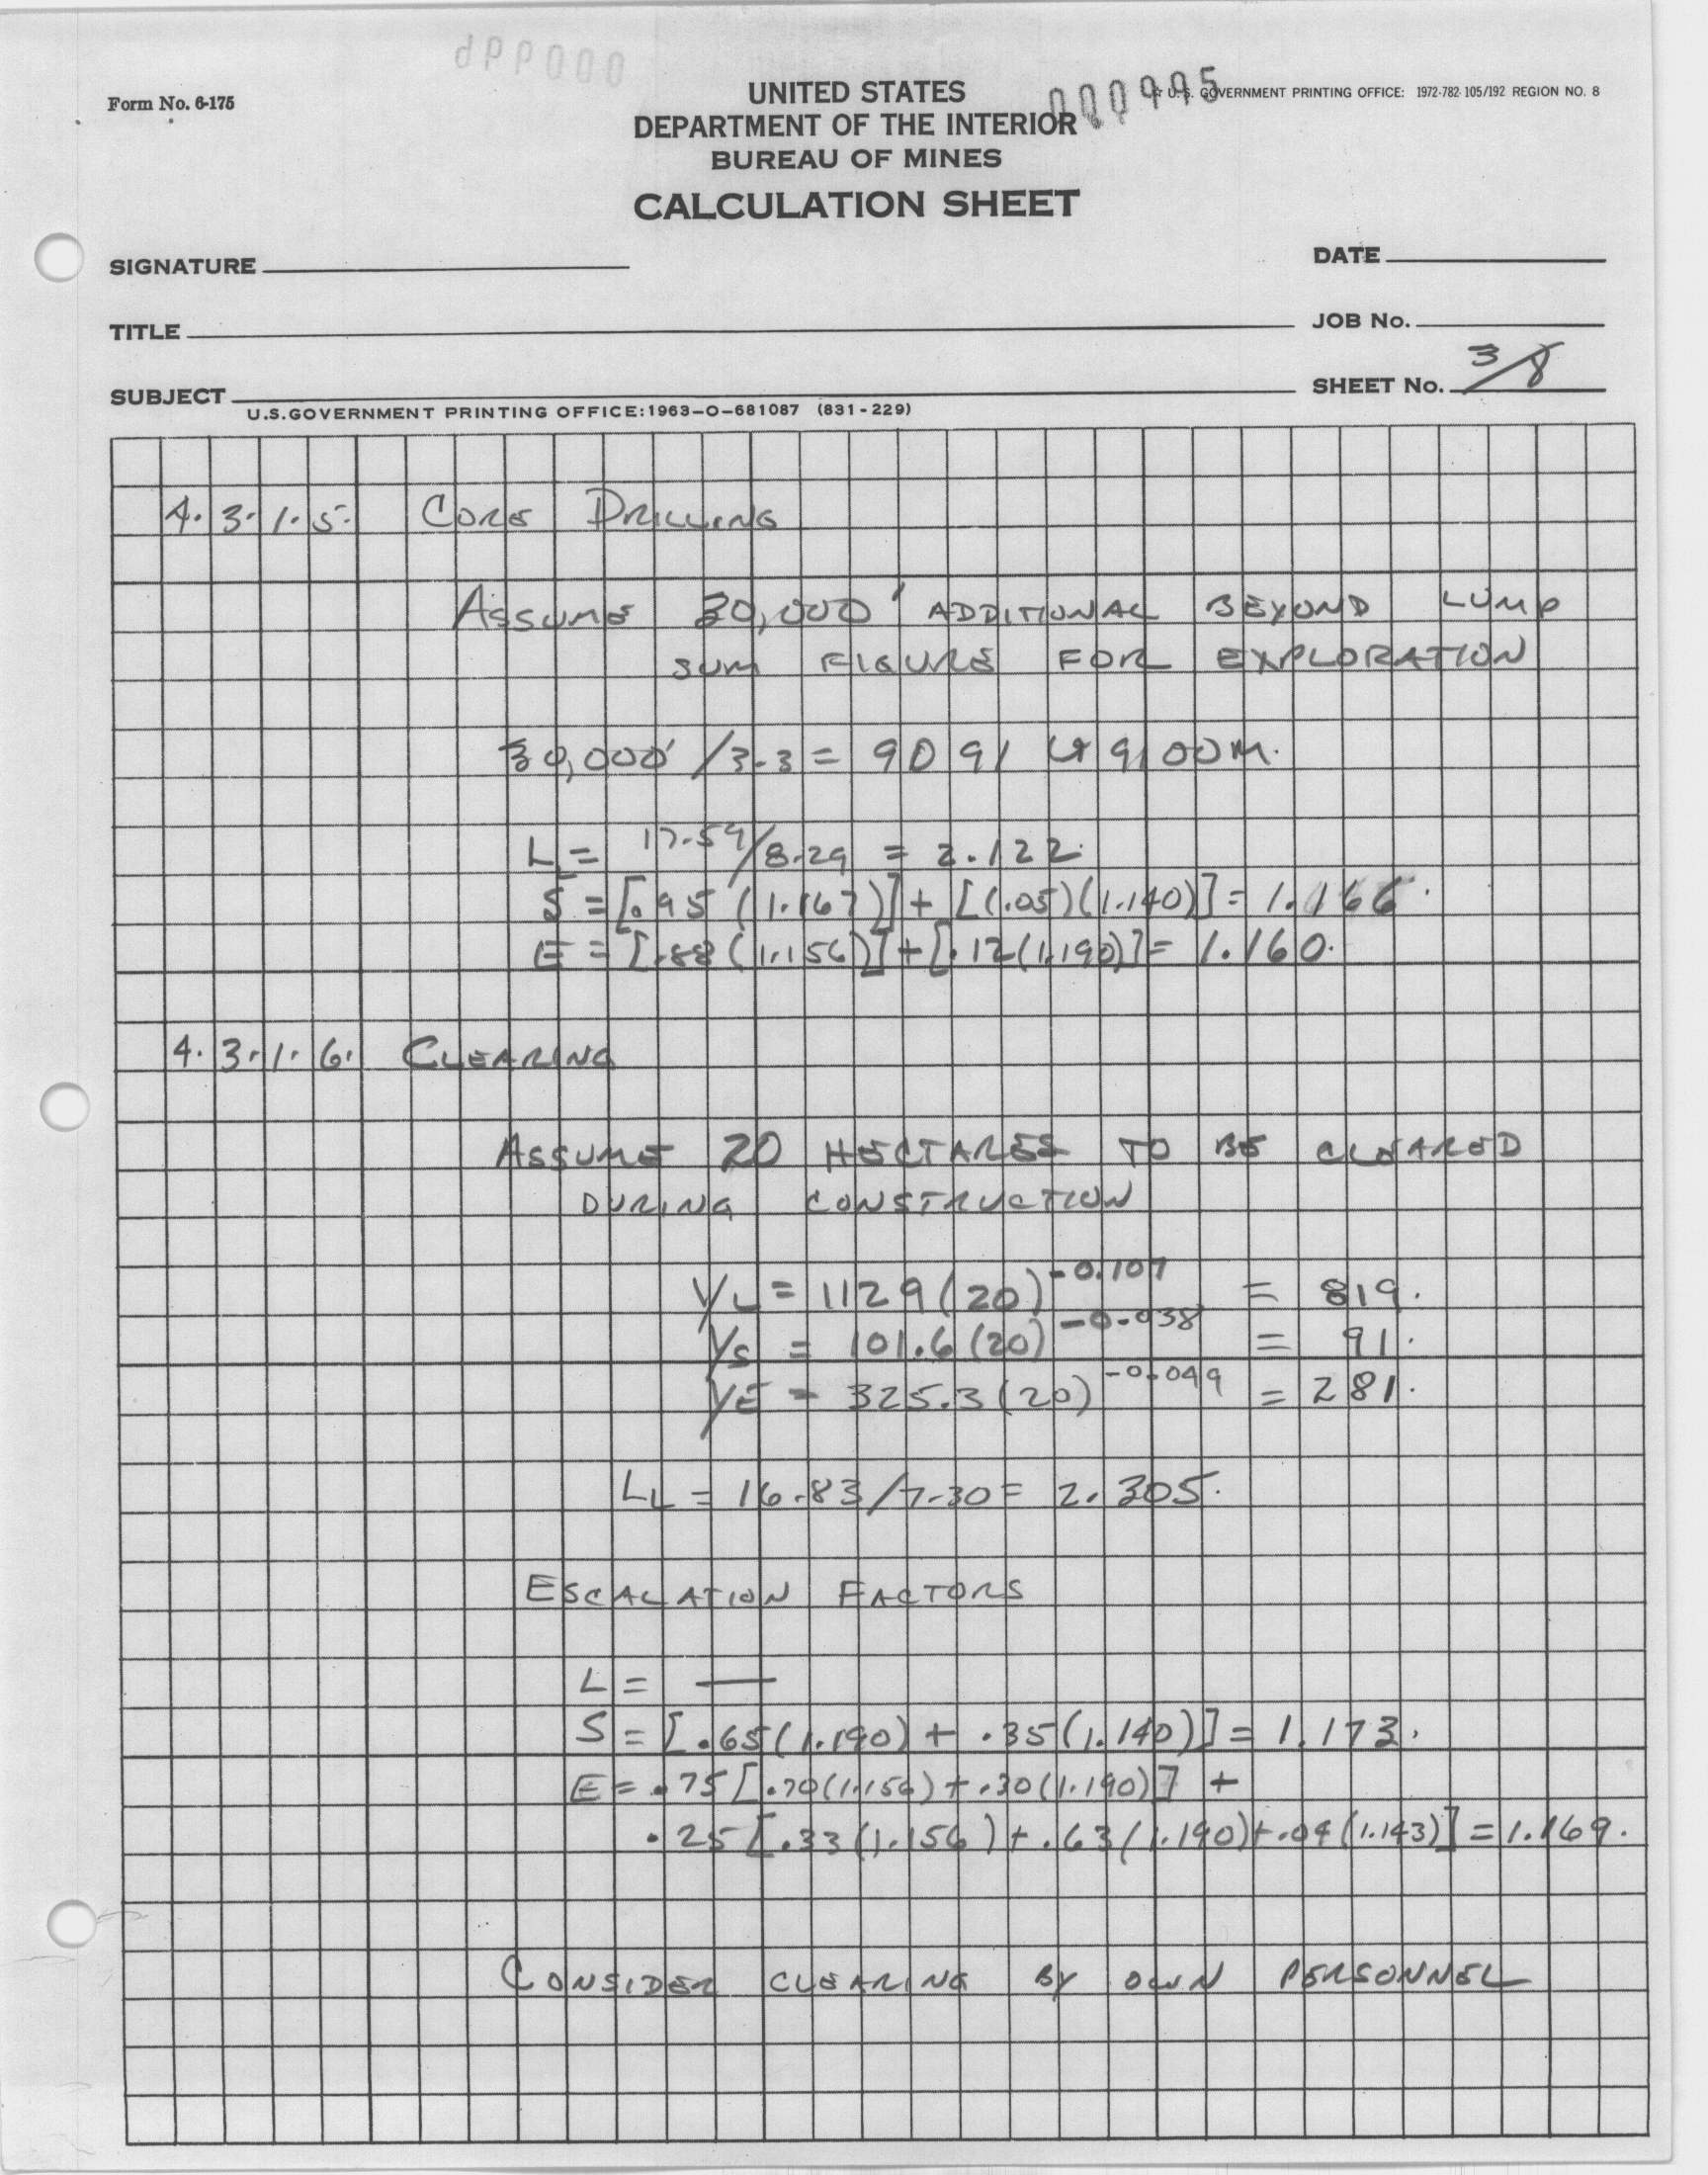 000995
Form No. 6-175
UNITED STATES
DEPARTMENT OF THE INTERIOR
BUREAU OF MINES
CALCULATION SHEET
U.S. GOVERNMENT PRINTING OFFICE: 1972-782-105/192 REGION NO. 8
SIGNATURE
DATE
TITLE
JOB No.
SUBJECT
SHEET No. 3/8
U.S.GOVERNMENT PRINTING OFFICE:1963-O-681087 (831-229)
4.3.1.5. CORE DRILLING
ASSUME 30,000' ADDITIONAL BEYOND LUMP
SUM FIGURE FOR EXPLORATION
30,000' /3.3 = 9091 9100M.
L = 17.59/8.29 = 2.122.
S = [.95 (1.167)] + [(.05)(1.140)] = 1.166.
E = [.88 (1.156)] + [.12(1.190)] = 1.160.
4.3.1.6. CLEARING
ASSUME 20 HECTARES TO BE CLEARED
DURING CONSTRUCTION
YL = 1129 (20)-0.107 = 819.
YS = 101.6 (20)-0.038 = 91.
YE = 325.3 (20)-0.049 = 281.
LL = 16.83/7.30 = 2.305.
ESCALATION FACTORS
L = —
S = [.65(1.190) + .35(1.140)] = 1.173.
E = .75 [.70(1.156) + .30(1.190)] +
.25 [.33(1.156) + .63(1.190) + .04(1.143)] = 1.169.
CONSIDER CLEARING BY OWN PERSONNEL